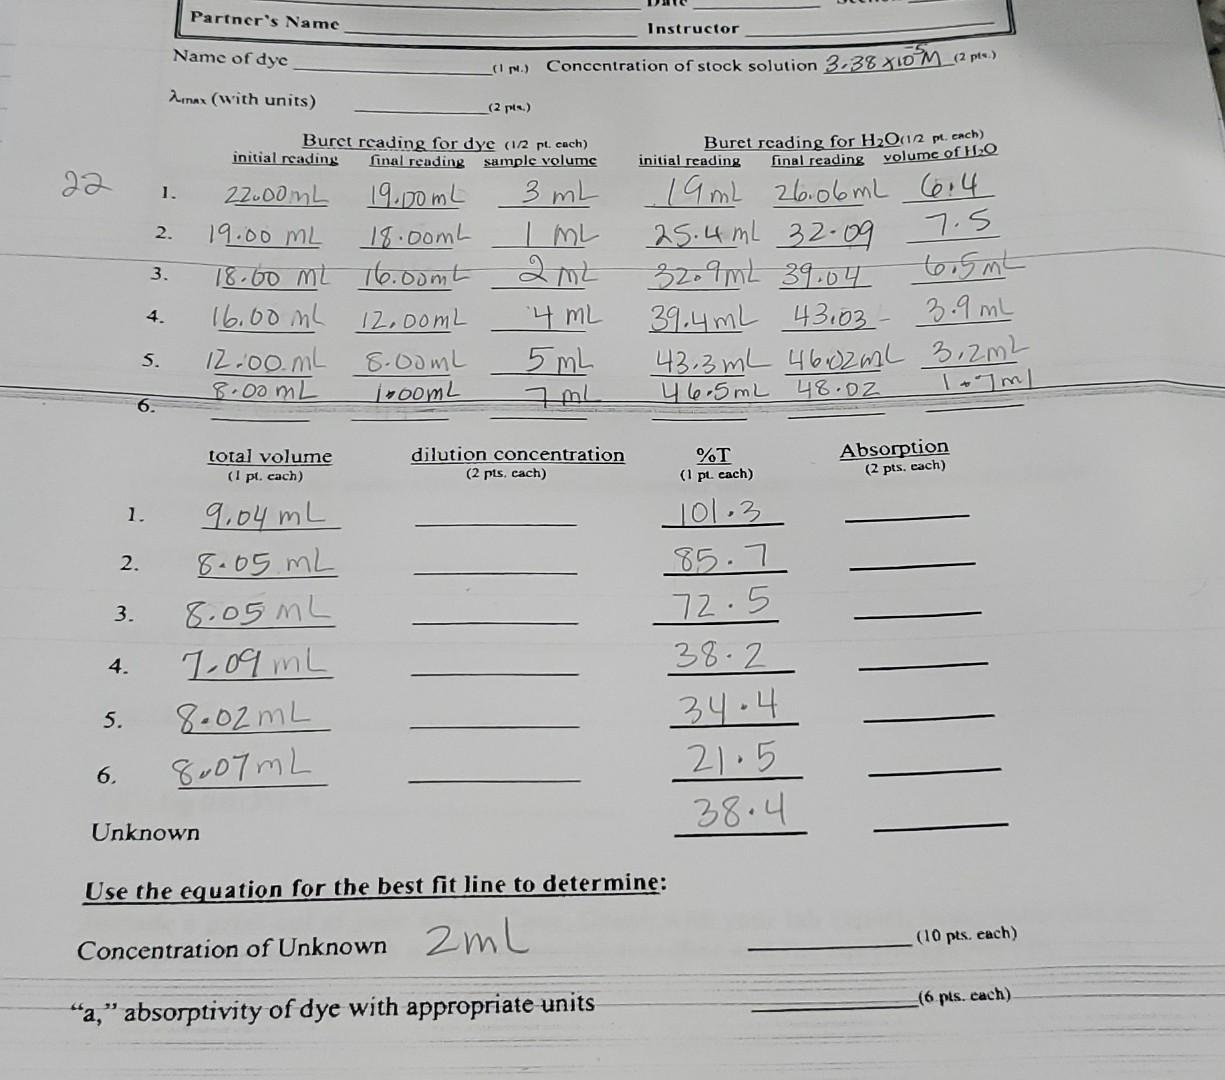 Partner's Name Instructor
Name of dye (1 pt.) Concentration of stock solution 3.38 x10⁻⁵M (2 pts.)
λmax (with units) (2 pts.)
Buret reading for dye (1/2 pt. each) Buret reading for H₂O (1/2 pt. each)
initial reading final reading sample volume initial reading final reading volume of H₂O
22 1. 22.00 mL 19.00 mL 3 mL 19 mL 26.06 mL 6.4
2. 19.00 mL 18.00mL 1 mL 25.4 mL 32.09 7.5
3. 18.00 mL 16.00mL 2 mL 32.9mL 39.04 6.5mL
4. 16.00 mL 12.00mL 4 mL 39.4mL 43.03 3.9 mL
5. 12.00 mL 8.00mL 5 mL 43.3 mL 46.02mL 3.2mL
6. 8.00 mL 1.00mL 7 mL 46.5mL 48.02 1.7ml
total volume dilution concentration %T Absorption
(1 pt. each) (2 pts. each) (1 pt. each) (2 pts. each)
1. 9.04 mL 101.3
2. 8.05 mL 85.7
3. 8.05 mL 72.5
4. 7.09 mL 38.2
5. 8.02mL 34.4
6. 8.07mL 21.5
Unknown 38.4
Use the equation for the best fit line to determine:
Concentration of Unknown 2mL (10 pts. each)
"a," absorptivity of dye with appropriate units (6 pts. each)